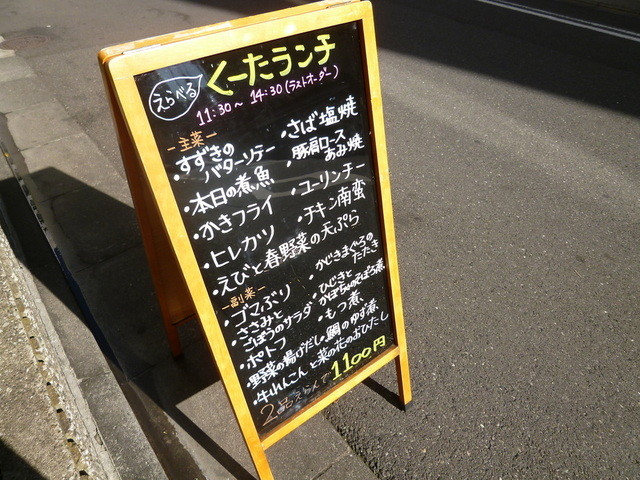 えらべる
くーたランチ
11:30～14:30(ラストオーダー)
ー主菜ー
・すずきの
バターソテー
・本日の煮魚
・かきフライ
・ヒレカツ
・えびと春野菜の天ぷら
・さば塩焼
・豚肩ロース
あみ焼
・ユーリンチー
・チキン南蛮
副菜ー
・ゴマぶり
・ささみと
ごぼうのサラダ
・ポテトフ
・野菜の揚げだし
・牛れんこんと菜の花のおひたし
・かじきまぐろの
たたき
・ひじきと
かぼちゃのそぼろ煮
・もつ煮
・鯛のゆず煮
2品えらんで1100円